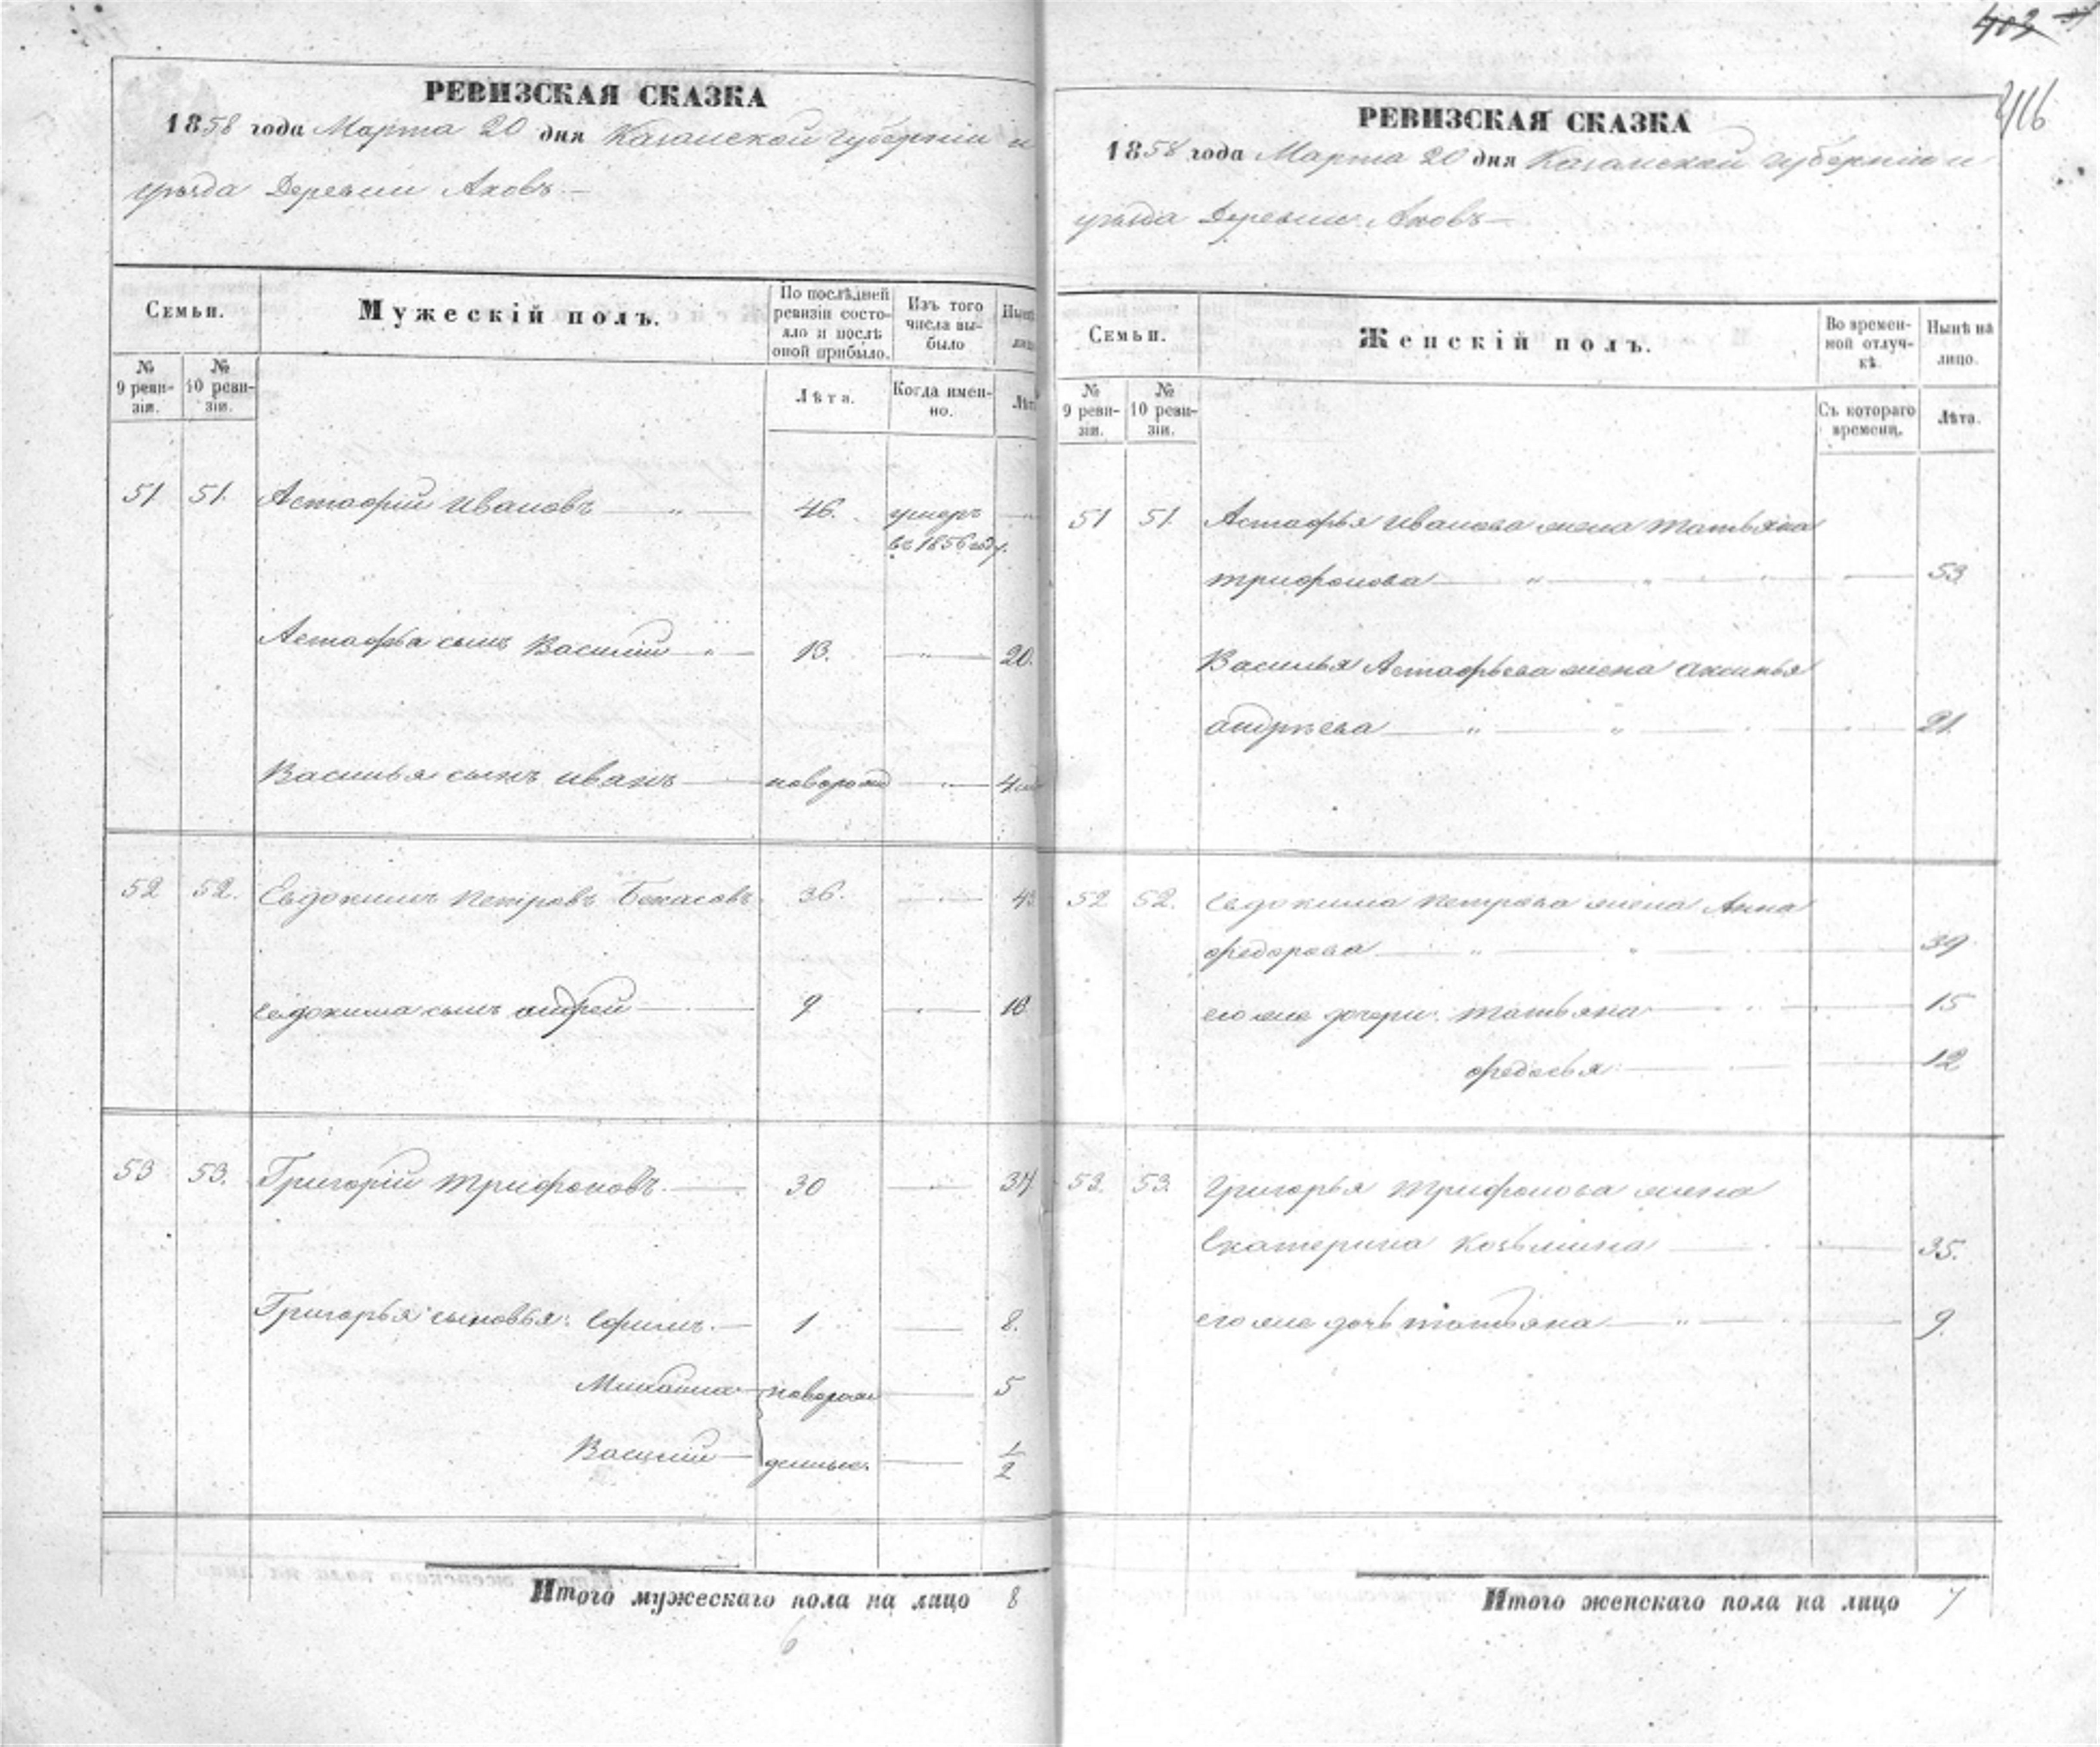 416
РЕВИЗСКАЯ СКАЗКА
1858 года Марта 20 дня Казанской губернии и
уѣзда Деревни Аковъ
Семьи.
Мужескій полъ.
По послѣдней ревизіи состо-
яло и послѣ
оной прибыло.
Изъ того
числа вы-
было
№
9 реви-
зіи.
№
10 реви-
зіи.
Лѣта.
Когда имен-
но.
51 51. Астафій Ивановъ — " — 46. умеръ —
въ 1856 году.
Астафья сынъ Василій " — 13. — " — 20.
Василья сынъ Иванъ — новорожд — " — 4
52 52. Евдокимъ Петровъ Бекасовъ 36. — 43
Евдокима сынъ Андрей — 9 — 16
53 53. Григорій Трифоновъ — 30 — 37
Григорья сыновья: Ефимъ. — 1 — 8.
Михаила — новорож — 5
Василій — денные — 1/2
Итого мужескаго пола на лицо 8
РЕВИЗСКАЯ СКАЗКА
1858 года Марта 20 дня Казанской губерніи и
уѣзда Деревни Аковъ —
Семьи.
Женскій полъ.
Во времен-
ной отлуч-
кѣ.
Нынѣ на
лицо.
№
9 реви-
зіи.
№
10 реви-
зіи.
Съ котораго
времени.
Лѣта.
51 51. Астафья Иванова жена Татьяна
Трифонова — " — 53
Василья Астафьева жена Аксинья
Андрѣева — " — 21.
52 52. Евдокима Петрова жена Анна
Федорова — " — 39
его же дочери: Татьяна — 15
Федосья — 12
53. 53. Григорья Трифонова жена
Екатерина Козьмина — 35.
его же дочь Татьяна — " — 9.
Итого женскаго пола на лицо 7